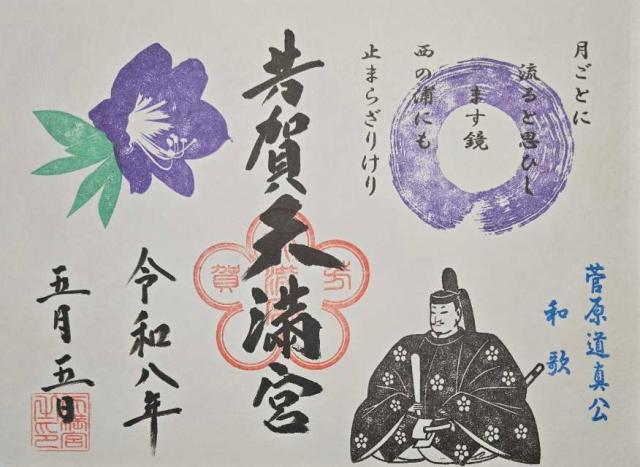 月ごとに
流ると思ひし
ます鏡
西の浦にも
止まらざりけり
菅原道真公
和歌
芳賀天満宮
令和八年
五月五日